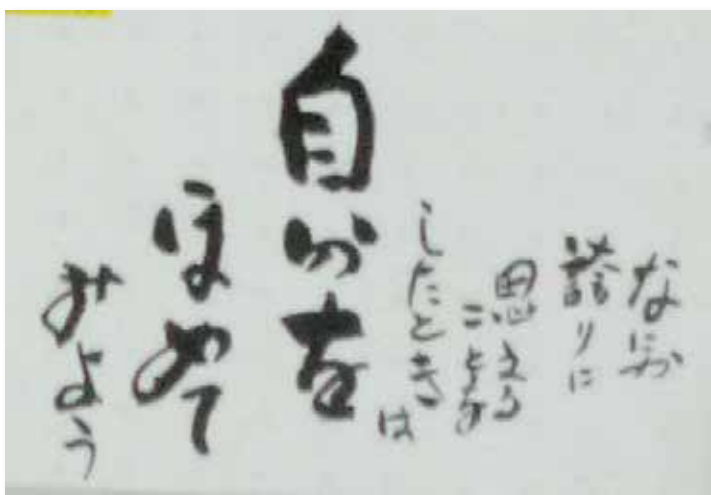 なにか
誇りに
思える
ことを
したときは
自分を
ほめて
みよう